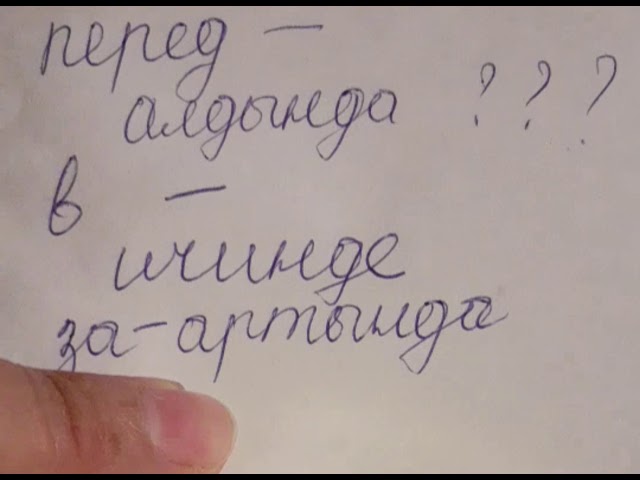 перед —
алдында ? ? ?
в —
ичинде
за-артында